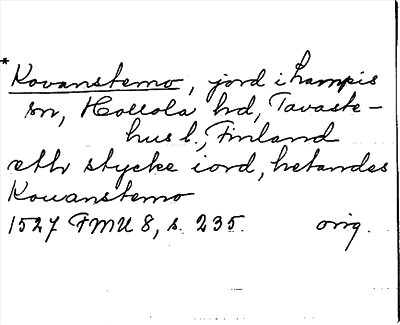 *
Kovanstemo, jord i Lampis
sn, Hollola hd, Tavaste-
hus l., Finland
eth stycke iord, hetandes
Kouanstemo
1527 FMU 8, s. 235. orig.